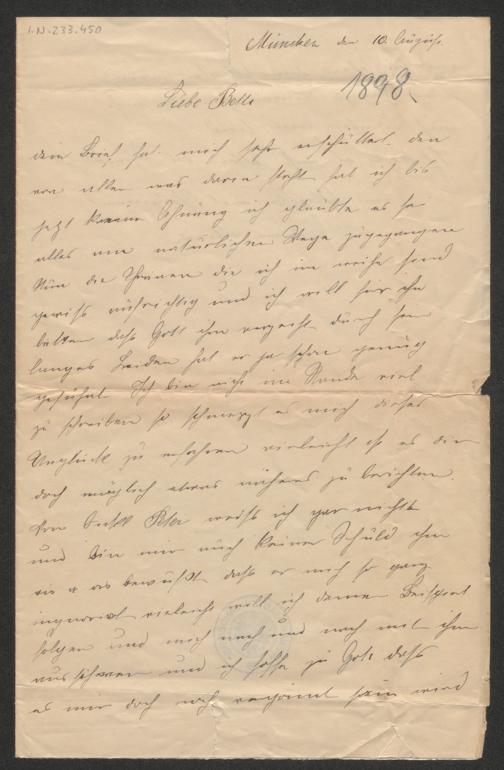 I.N. 233.450
München den 10. August.
1898
Liebe Belli
dein Brief hat mich sehr erschüttet. den
von allen was darin steht hat ich bis
jetzt keine Ahnung ich glaubte es sei
alles am natürlichen Wege zugegangen
Nun die Thränen die ich im weihe sind
gewiss aufrichtig und ich will für ihn
bitten dass Gott ihm verzeiht durch sein
langes Leiden hat er ja schon genug
gesühnt Ich bin nicht im Stande viel
zu schreiben so schmerzt es mich dieses
Unglück zu erfahren vieleicht ist es dir
doch möglich etwas näheres zu berichten.
Von Peter weiss ich gar nichts
und bin mir auch keiner Schuld
bewusst dass er mich so ganz
ingnorirt vieleicht will ich deinem Beispiel
folgen und mich nach und nach mit ihm
aussöhnen und ich hoffe zu Gott dass
es mir doch noch vergönnt sein wird